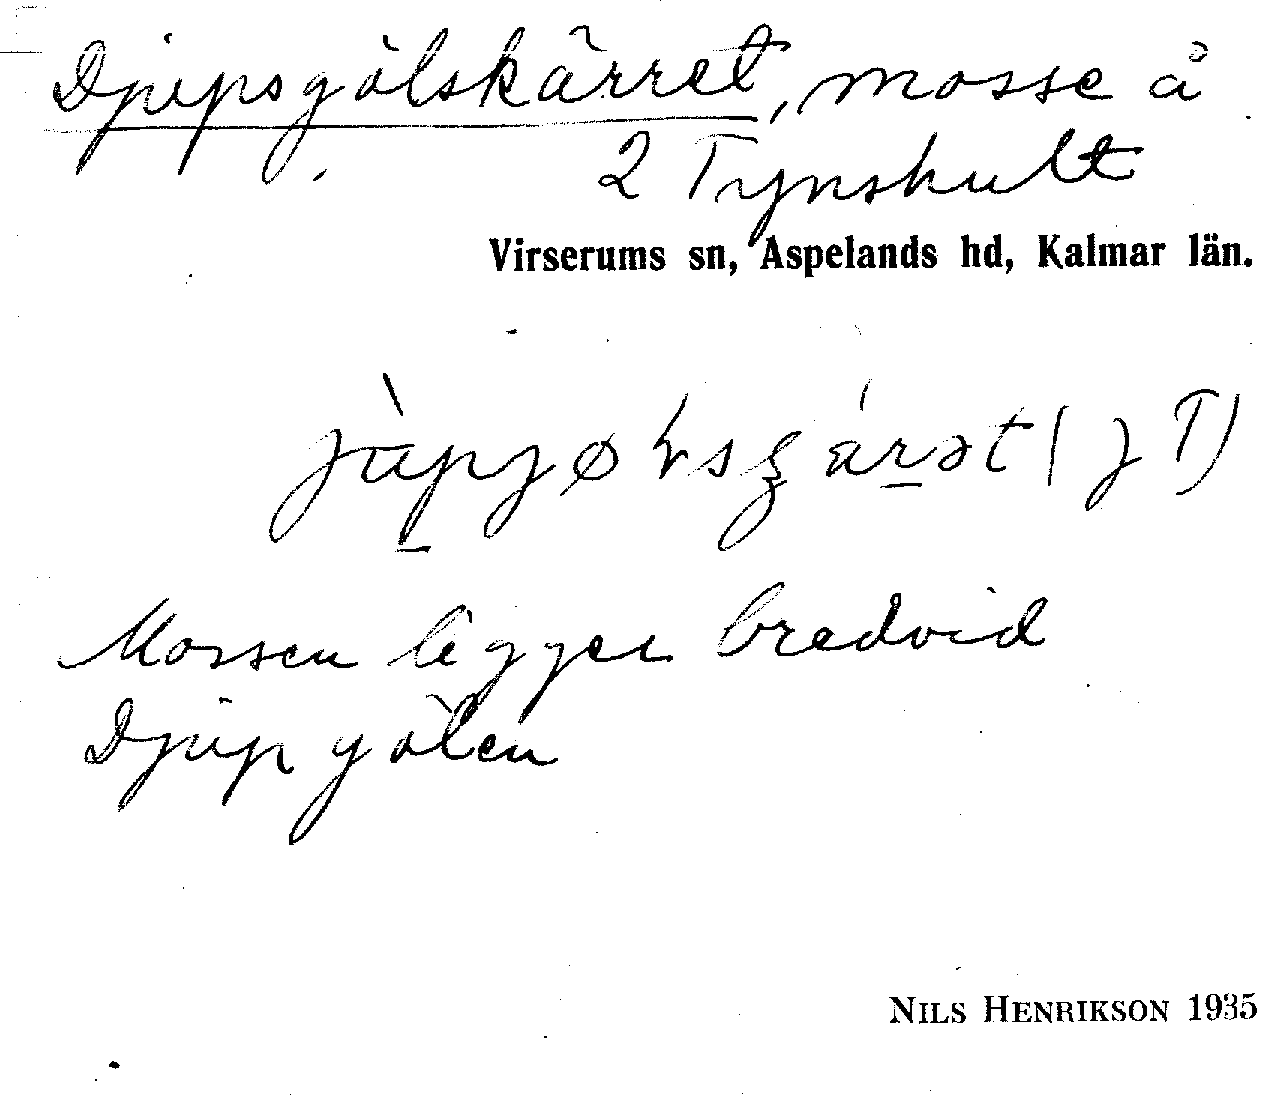 Djupsgölskärret, mosse å
2 Tynshult
Virserums sn, Aspelands hd, Kalmar län.
(J T)
Mossen ligger bredvid
Djupgölen
NILS HENRIKSON 1935